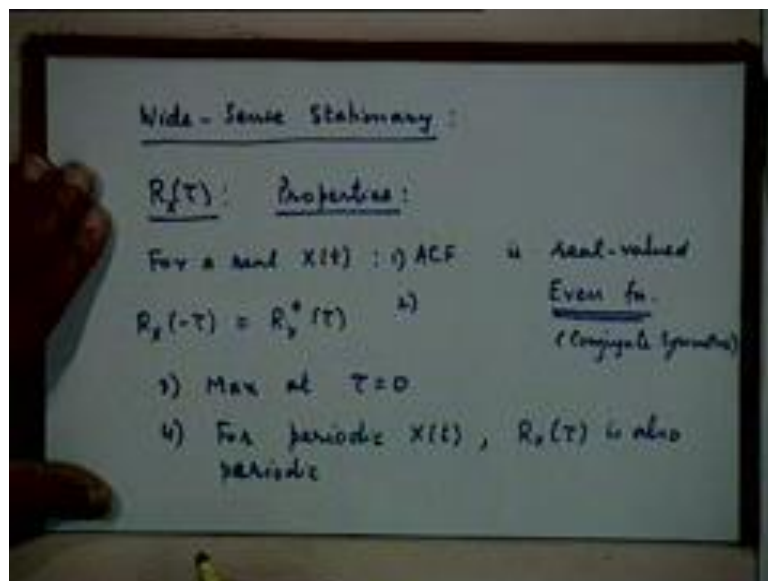 Wide-Sense Stationary :
Rx(τ) : Properties :
For a real X(t) : 1) ACF is real-valued
2) Even fn.
Rx(-τ) = Rx*(τ) (Conjugate Symmetric)
3) Max at τ=0
4) For periodic X(t), Rx(τ) is also
periodic